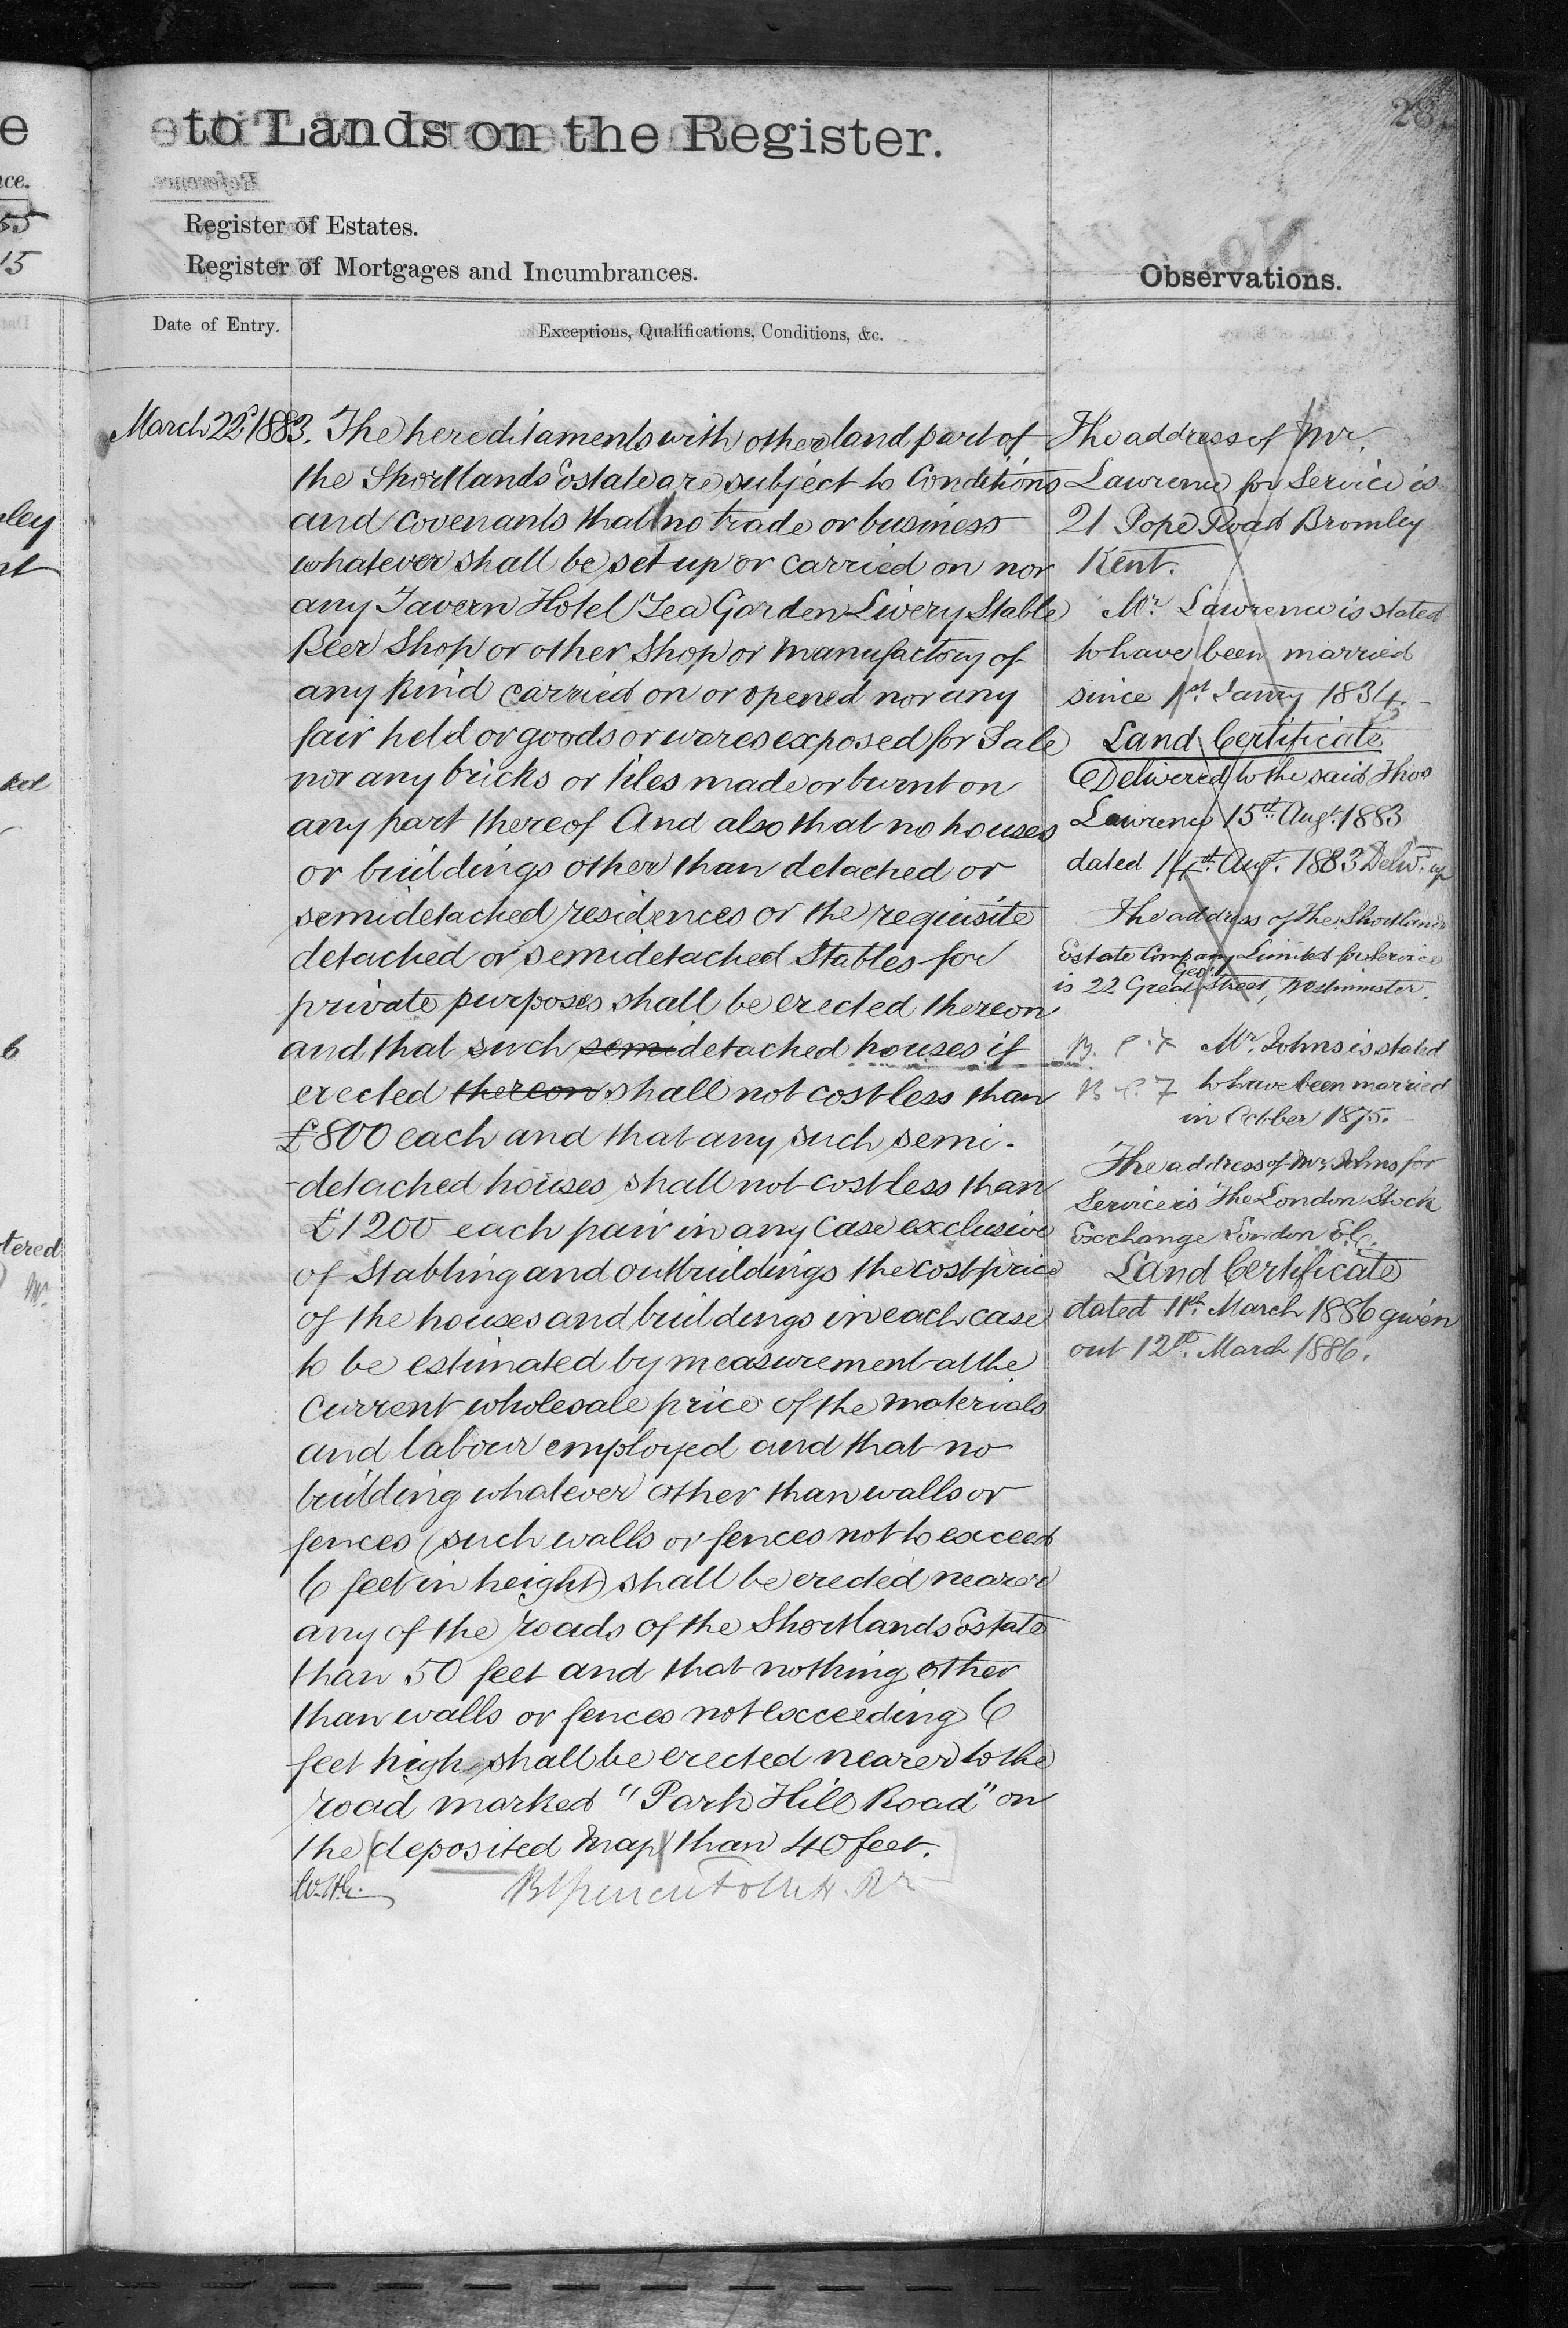 28
to Lands on the Register.
Register of Estates.
Register of Mortgages and Incumbrances.
Observations.
Date of Entry.
Exceptions, Qualifications, Conditions, &c.
March 22d 1883. The hereditaments with other land part of
the Shortlands Estate are subject to Conditions
and covenants that no trade or business
whatever shall be set up or carried on nor
any Tavern Hotel Tea Garden Livery Stable
Beer Shop or other Shop or Manufactory of
any kind carried on or opened nor any
fair held or goods or wares exposed for Sale
nor any bricks or tiles made or burnt on
any part thereof And also that no houses
or buildings other than detached or
semidetached residences or the requisite
detached or semidetached Stables for
private purposes shall be erected thereon
and that such semidetached houses if
erected thereon shall not cost less than
£800 each and that any such semi-
-detached houses shall not cost less than
£1200 each pair in any case exclusive
of Stabling and outbuildings the cost price
of the houses and buildings in each case
to be estimated by measurement at the
current wholesale price of the materials
and labour employed and that no
building whatever other than walls or
fences (such walls or fences not to exceed
6 feet in height) shall be erected nearer
any of the roads of the Shortlands Estate
than 50 feet and that nothing other
than walls or fences not exceeding 6
feet high shall be erected nearer to the
road marked "Park Hill Road" on
the (deposited map) than 40 feet.
The address of Mr.
Lawrence for Service is
21 Pope Road Bromley
Kent.
Mr. Lawrence is stated
to have been married
since 1st Jany 1834.
Land Certificate
Delivered to the said Thos
Lawrence 15th Augt. 1883
dated 14th Augt. 1883 Delivd. up
The address of The Shortlands
Estate Company Limited for Service
is 22 Great Geo. Street, Westminster.
Mr. Johns is stated
to have been married
in October 1875.
The address of Mr. Johns for
Service is The London Stock
Exchange London E.C.
Land Certificate
dated 11th March 1886 given
out 12th March 1886.